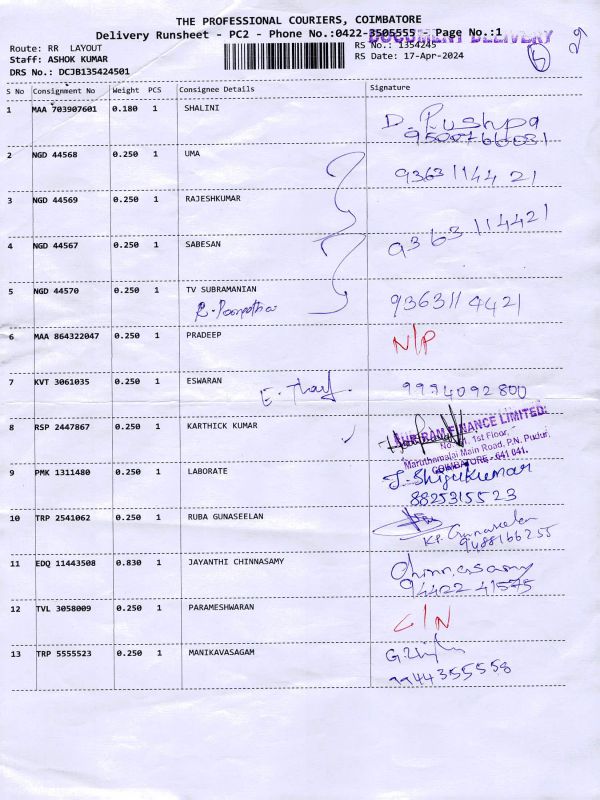 THE PROFESSIONAL COURIERS, COIMBATORE
Delivery Runsheet - PC2 - Phone No.:0422-3505555 - Page No.:1
DOCUMENT DELIVERY
Route: RR LAYOUT
RS No.: 1354245
Staff: ASHOK KUMAR
RS Date: 17-Apr-2024
DRS No.: DCJB135424501
S No Consignment No Weight PCS Consignee Details Signature
1 MAA 703907601 0.180 1 SHALINI D. Pushpa
2 NGD 44568 0.250 1 UMA 9363114421
3 NGD 44569 0.250 1 RAJESHKUMAR 9363114421
4 NGD 44567 0.250 1 SABESAN
5 NGD 44570 0.250 1 TV SUBRAMANIAN 9363114421
6 MAA 864322047 0.250 1 PRADEEP N/P
7 KVT 3061035 0.250 1 ESWARAN 9994092800
8 RSP 2447867 0.250 1 KARTHICK KUMAR
FINANCE LIMITED.
1st Floor,
Maruthamalai Main Road, P.N. Pudur,
COIMBATORE - 641 041.
9 PMK 1311480 0.250 1 LABORATE J. Shijukumar
8825315523
10 TRP 2541062 0.250 1 RUBA GUNASEELAN
KP. Gunaseelan
9488166255
11 EDQ 11443508 0.830 1 JAYANTHI CHINNASAMY Chinnasamy
94422 41575
12 TVL 3058009 0.250 1 PARAMESHWARAN C/N
13 TRP 5555523 0.250 1 MANIKAVASAGAM
9944355558